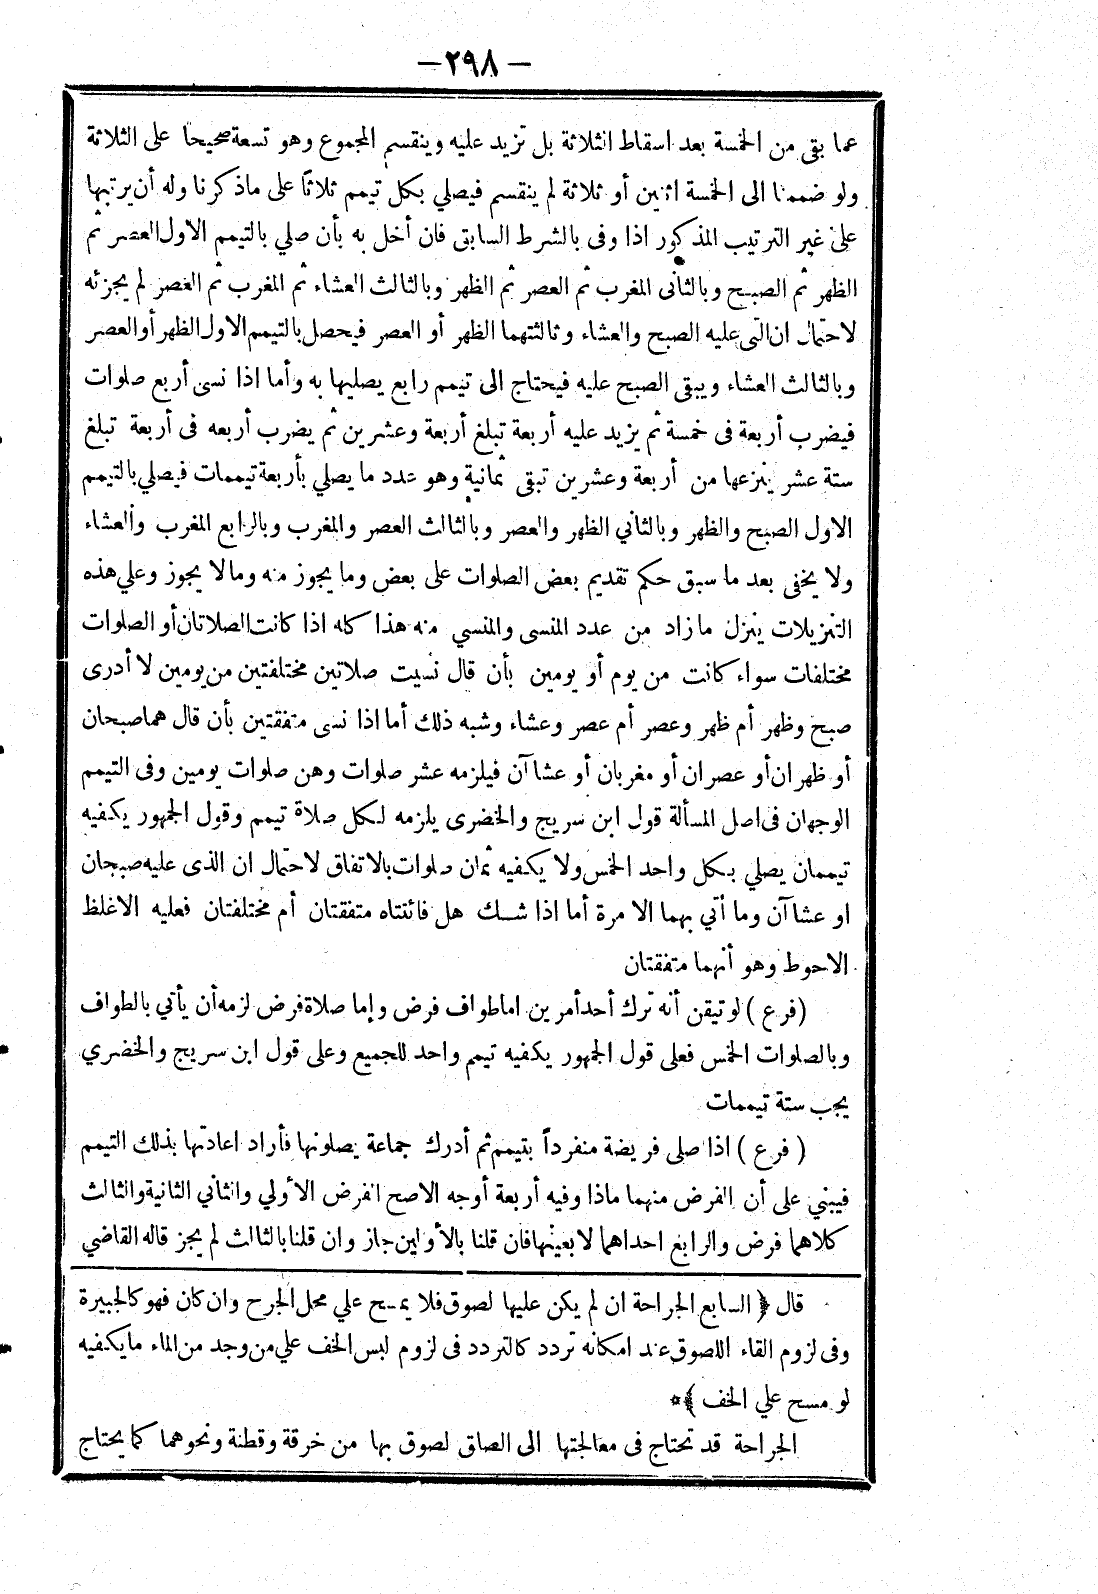 — ٢٩٨ —
عما بقى من الخمسة بعد اسقاط الثلاثة بل تزيد عليه وينقسم المجموع وهو تسعة صحيحا على الثلاثة
ولو ضممنا الى الخمسة اثنين أو ثلاثة لم ينقسم فيصلي بكل تيمم ثلاثا على ماذكرنا وله أن يرتبها
على غير الترتيب المذكور اذا وفى بالشرط السابق فان أخل به بأن صلي بالتيمم الاول العصر ثم
الظهر ثم الصبح وبالثانى المغرب ثم العصر ثم الظهر وبالثالث العشاء ثم المغرب ثم العصر لم يجزئه
لاحتمال ان التى عليه الصبح والعشاء وثالثتهما الظهر أو العصر فيحصل بالتيمم الاول الظهر أو العصر
وبالثالث العشاء ويبقى الصبح عليه فيحتاج الى تيمم رابع يصليها به وأما اذا نسى أربع صلوات
فيضرب أربعة فى خمسة ثم يزيد عليه أربعة تبلغ أربعة وعشرين ثم يضرب أربعه فى أربعة تبلغ
ستة عشر ينزعها من أربعة وعشرين تبقى ثمانية وهو عدد ما يصلي بأربعة تيممات فيصلي بالتيمم
الاول الصبح والظهر وبالثاني الظهر والعصر وبالثالث العصر والمغرب وبالرابع المغرب والعشاء
ولا يخفى بعد ما سبق حكم تقديم بعض الصلوات على بعض وما يجوز منه ومالا يجوز وعلي هذه
التنزيلات ينزل مازاد من عدد المنسى والمنسي منه هذا كله اذا كانت الصلاتان أو الصلوات
مختلفات سواء كانت من يوم أو يومين بأن قال نسيت صلاتين مختلفتين من يومين لا أدرى
صبح وظهر أم ظهر وعصر أم عصر وعشاء وشبه ذلك أما اذا نسى متفقتين بأن قال هما صبحان
أو ظهران أو عصران أو مغربان أو عشاآن فيلزمه عشر صلوات وهن صلوات يومين وفى التيمم
الوجهان فى اصل المسألة قول ابن سريج والخضرى يلزمه لكل صلاة تيمم وقول الجمهور يكفيه
تيممان يصلي بكل واحد الخمس ولا يكفيه ثمان صلوات بالاتفاق لاحتمال ان الذى عليه صبحان
او عشاآن وما أتي بهما الا مرة أما اذا شك هل فائتتاه متفقتان أم مختلفتان فعليه الاغلظ
الاحوط وهو أنهما متفقتان
( فرع ) لو تيقن أنه ترك أحد أمرين اما طواف فرض وإما صلاة فرض لزمه أن يأتي بالطواف
وبالصلوات الخمس فعلى قول الجمهور يكفيه تيمم واحد للجميع وعلى قول ابن سريج والخضري
يجب ستة تيممات
( فرع ) اذا صلى فريضة منفرداً بتيمم ثم أدرك جماعة يصلونها فأراد اعادتها بذلك التيمم
فيبني على أن الفرض منهما ماذا وفيه أربعة أوجه الاصح الفرض الأولي والثاني الثانية والثالث
كلاهما فرض والرابع احداهما لا بعينها فان قلنا بالأولين جاز وان قلنا بالثالث لم يجز قاله القاضي
قال ﴿ السابع الجراحة ان لم يكن عليها لصوق فلا يمسح علي محل الجرح وان كان فهو كالجبيرة
وفى لزوم القاء اللصوق عند امكانه تردد كالتردد فى لزوم لبس الخف علي من وجد من الماء مايكفيه
لو مسح علي الخف ﴾*
الجراحة قد تحتاج فى معالجتها الى الصاق لصوق بها من خرقة وقطنة ونحوهما كما يحتاج